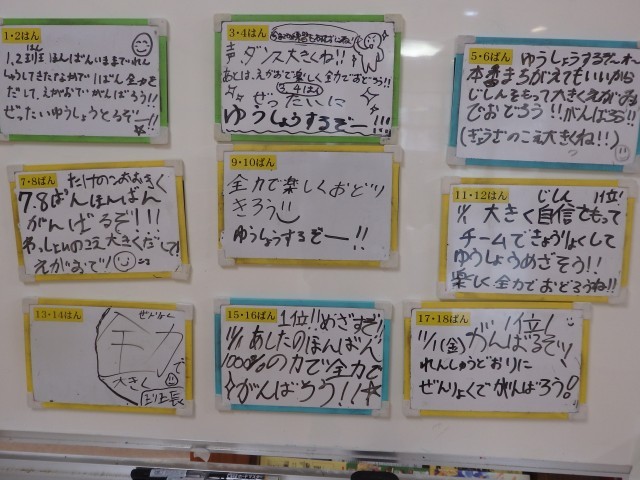 1・2はん
1,2班 ほんばんいままでれん
しゅうしてきたなかで1ばん全力を
だして、えがおでがんばろう!!
ぜったいゆうしょうとるぞー!!
3・4はん
声、ダンス大きくね!!
あとは、えがおで楽しく全力でおどろう!!
3,4はん
ぜったいに
ゆうしょうするぞー!!!
5・6ぱん
ゆうしょうするぞーオー
本番まちがえてもいいから
じしんをもって大きくえがお
でおどろう!!がんばろう!!
(ぎょうざのこえ大きくね!!)
7・8ぱん
たけのこおおきく
7.8ぱんほんばん
がんばるぞ!!!
わっしょいのこえ大きくだして!
えがおでツ!
9・10ぱん
全力で楽しくおどり
きろう!!
ゆうしょうするぞー!!
11・12はん
じしん 1位!
11/11 大きく自信をもって
チームできょうりょくして
ゆうしょうめざそう!!
楽しく全力でおどろうね!!
13・14はん
ぜんりょく
全力で
大きく
班長
15・16ぱん
1位!!めざすぞ!
11/11あしたのほんばん
1000%の力で全力で
がんばろう!!
17・18ぱん
1位!
11/11(金)がんばるぞッ!
れんしゅうどおりに
ぜんりょくでがんばろう!